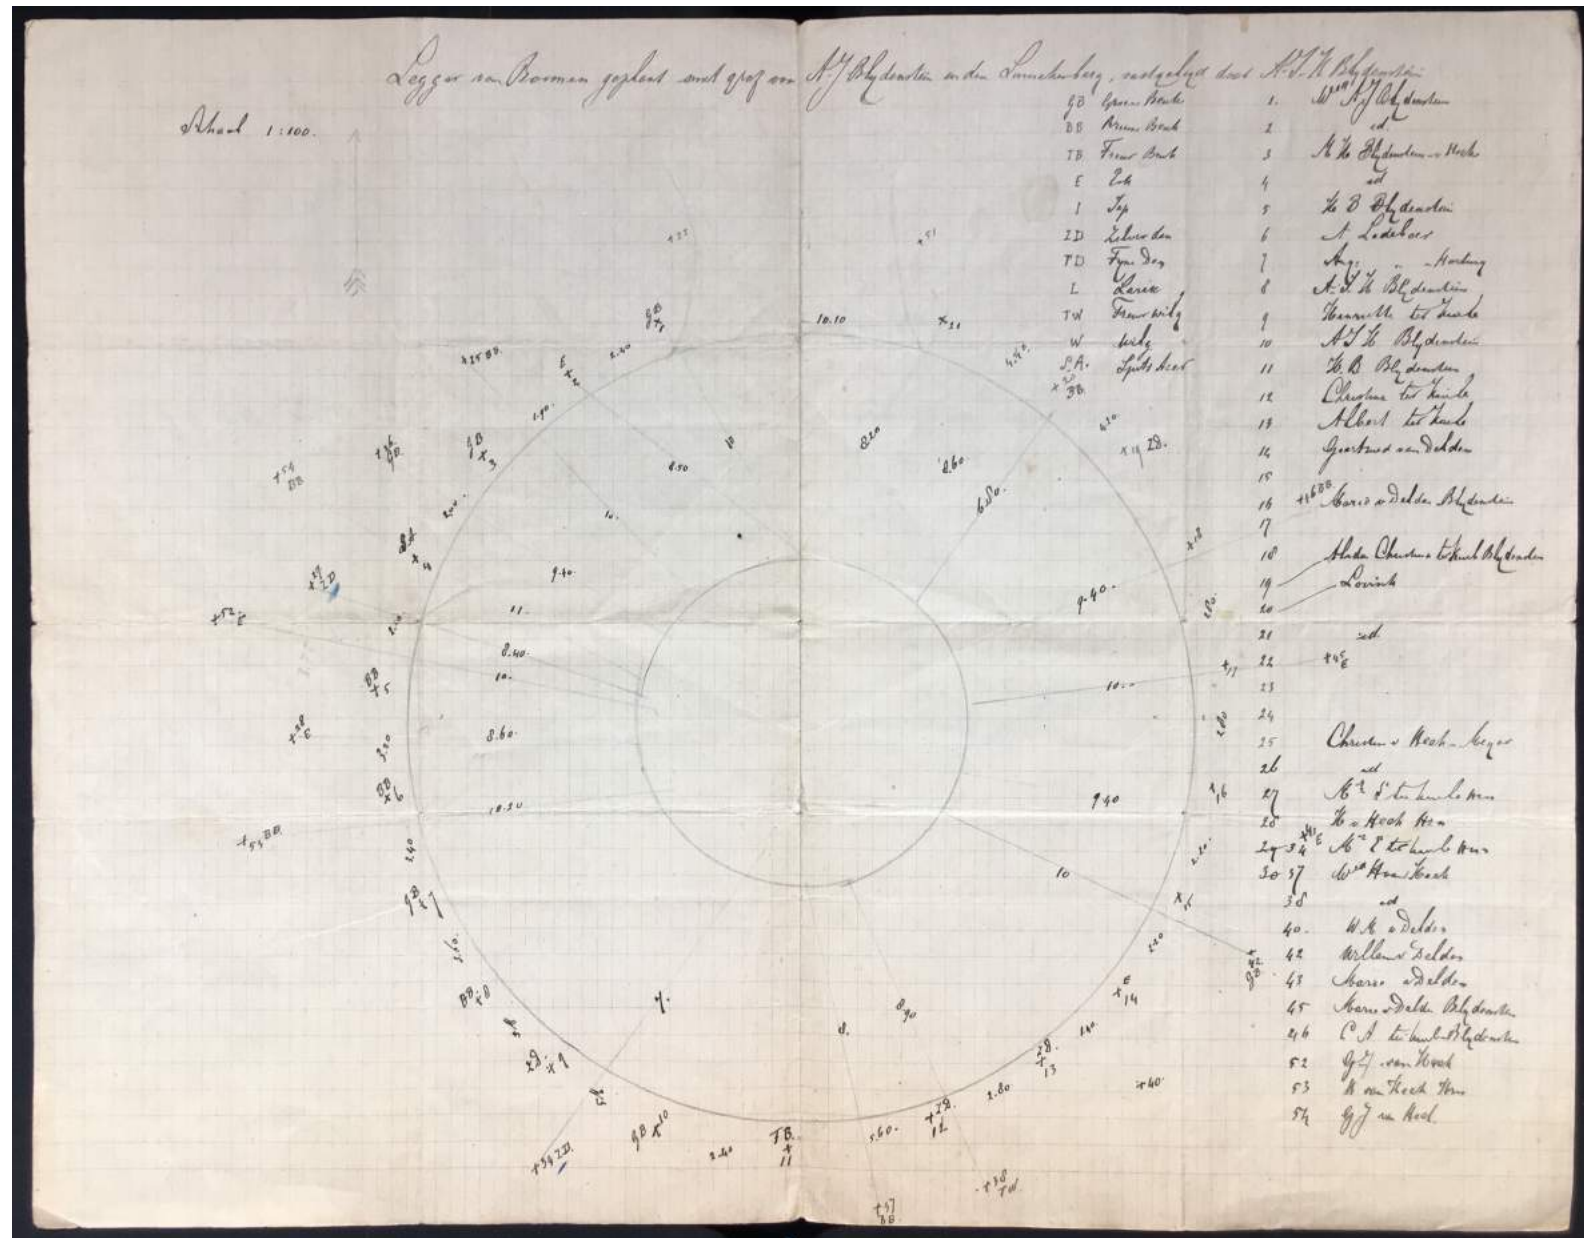 Legger van Boomen geplant met graf van A J Blydenstein in den Lonnekerberg, vastgelegd door A.J.H Blydenstein
Schaal 1:100.
GB Groene Beuk
BB Bruine Beuk
TB Treur Beuk
E Eik
I Iep
ZD Zilver den
FD Fyne Den
L Larix
TW Treurwilg
W Wilg
S.A. Spits Acer
1. Wed A J Blydenstein
2 id.
3 Blydenstein v Heek
4 id
5 H B Blydenstein
6 A Ledeboer
7 Aug: " - Hartung
8 A.J.H Blydenstein
9 Henriette ter Kuile
10 A J H Blydenstein
11 H.B Blydenstein
12 Christine ter Kuile
13 Albert ter Kuile
14 Geertruid van Delden
15
16 Marie v Delden Blydenstein
17
18 Christina ter Kuile Blydenstein
19 Lovink
20
21 id
22
23
24
25 Christine v Heek - Meyer
26 id
27 ter Kuile Hzn
28 H v Heek Hzn
29 34 ter Kuile Hzn
30 37 Wed H van Heek
38 id
40. v Delden
42 Willem v Delden
43 Marie v Delden
45 Marie v Delden Blydenstein
46 C A ter Kuile Blydenstein
52 G J van Heek
53 H van Heek Hzn
54 G J van Heek
+33
+51
GB x1
10.10
x21
+25 BB
E x2
2.40
4.40
x20 BB
1.90.
GB x3
8.50
10
8.20
8.60
6.80.
4.20
x19 ZD.
+16 BB
+54 BB
+26 GB
2.00.
x4
10.
x18
+27 ZD
9.40
9.40.
2.80
+52 E
11.
8.40
10.
BB +5
10.
x17
+45 E
+28 E
8.60
2.80
BB x6
10.20
9.40
x16
+53 BB
2.40
GB x7
10
x15
+43 E
BB x8
7.
8.90
8.
2.20
E x14
+42 GB
ZD. x9
1.40
ZD. x13
2.80
+40
GB x10
2.40
TB. + 11
5.60.
+ZD. 12
+34 ZD.
+38 TW
+37 BB